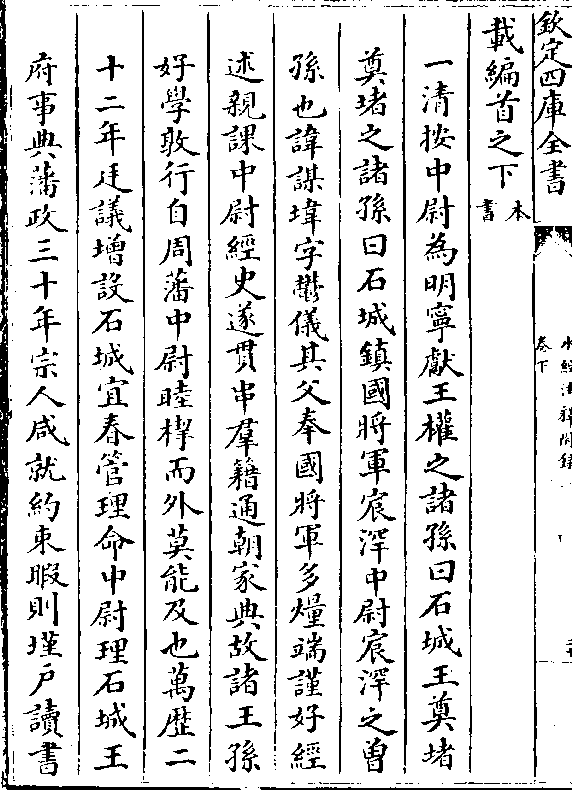 欽定四庫全書
水經注釋附錄
卷下
載編首之下本書
一清按中尉為明寧獻王權之諸孫曰石城王奠堵
奠堵之諸孫曰石城鎮國將軍宸浮中尉宸浮之曽
孫也諱謀㙔字鬱儀其父奉國將軍多㷍端謹好經
述親課中尉經史遂貫串羣籍通朝家典故諸王孫
好學敦行自周藩中尉睦㮮而外莫能及也萬歴二
十二年廷議增設石城宜春管理命中尉理石城王
府事典藩政三十年宗人咸就約束暇則墐戶讀書